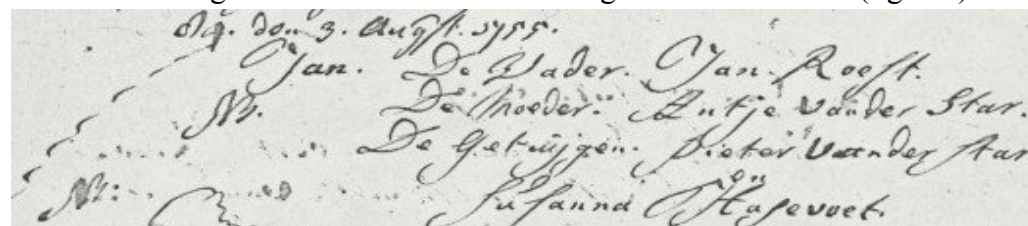 den 3. Augst. 1755.
Jan. De Vader. Jan Roest.
N. De Moeder. Antje Vander Star.
De Getuijgen. Pieter Vander Star
en
N: Susanna Hasevoet.